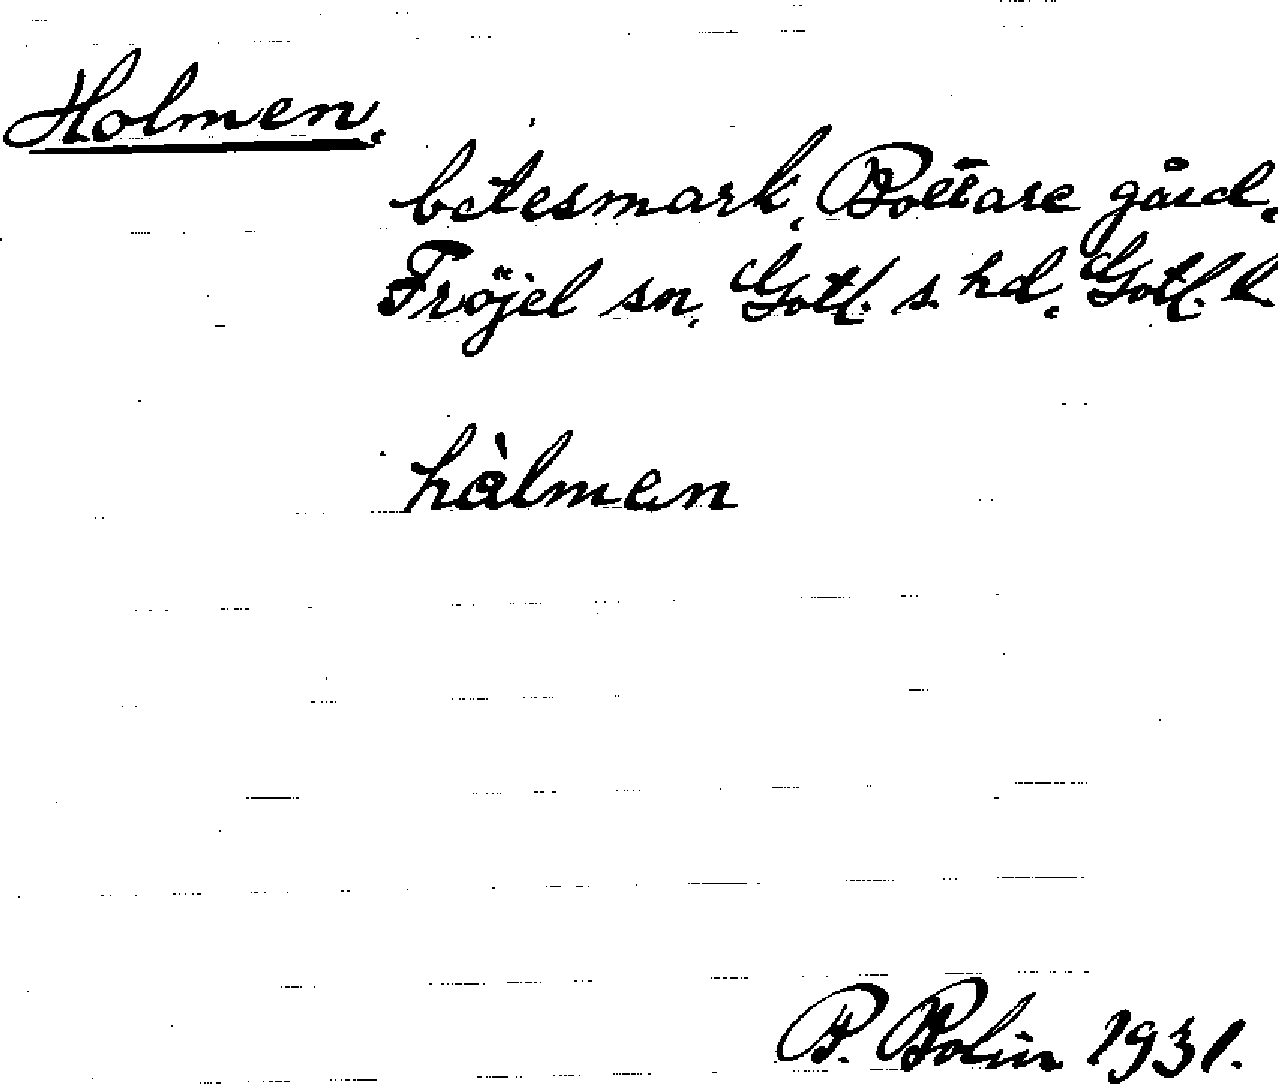 Holmen.
betesmark, Bottare gård,
Fröjel sn, Gotl. s. hd, Gotl. l.
hàlmen
B. Bolin 1931.